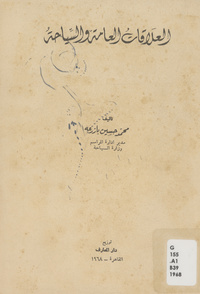 العلاقات العامة والسياحة
تأليف
محمد حسين بازرعه
مدير ادارة البرامج
وزارة السياحة
توزيع
دار المعارف
القاهرة - ١٩٦٨
G
155
.A1
B39
1968